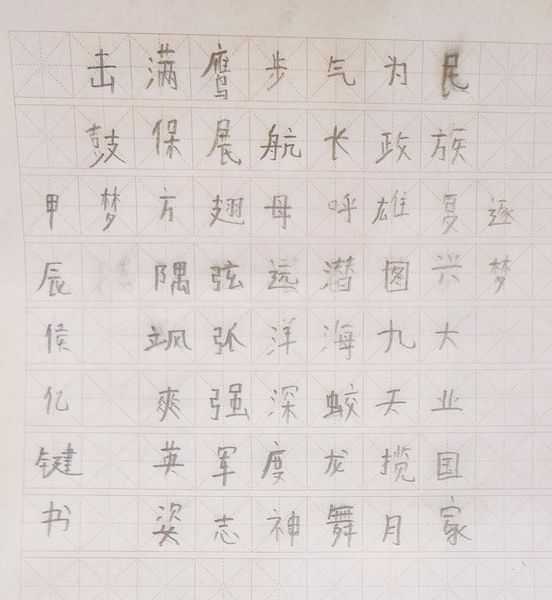 逐梦
民族复兴大业国家
为政雄图九天揽月
气长呼潜海蛟龙舞
步航母远洋深度神
鹰展翅弦弧强军志
满保方隅飒爽英姿
击鼓梦
甲辰侯亿键书